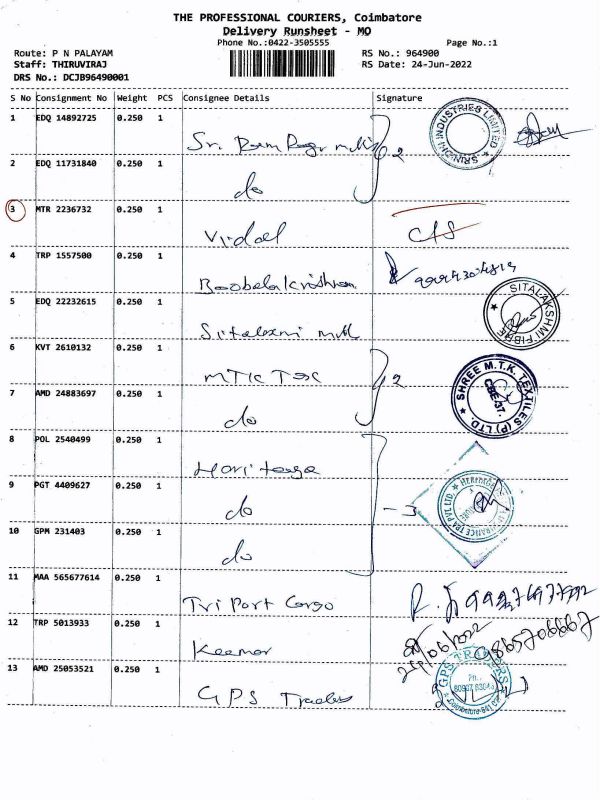 THE PROFESSIONAL COURIERS, Coimbatore
Delivery Runsheet - MO
Phone No.:0422-3505555 Page No.:1
Route: P N PALAYAM RS No.: 964900
Staff: THIRUVIRAJ RS Date: 24-Jun-2022
DRS No.: DCJB96490001
S No Consignment No Weight PCS Consignee Details Signature
1 EDQ 14892725 0.250 1
2
2 EDQ 11731840 0.250 1
do
3 MTR 2236732 0.250 1
Vidal
4 TRP 1557500 0.250 1
5 EDQ 22232615 0.250 1
SITALAKSHMI FIBRE
6 KVT 2610132 0.250 1
MTK Tex 2
SHREE M.T.K. TEXTILES (P) LTD.
CBE-37.
7 AMD 24883697 0.250 1
do
8 POL 2540499 0.250 1
9 PGT 4409627 0.250 1
do - 3
10 GPM 231403 0.250 1
do
11 MAA 565677614 0.250 1
Tri Port Cargo
12 TRP 5013933 0.250 1
13 AMD 25053521 0.250 1
GPS Trades
GPS TRADERS